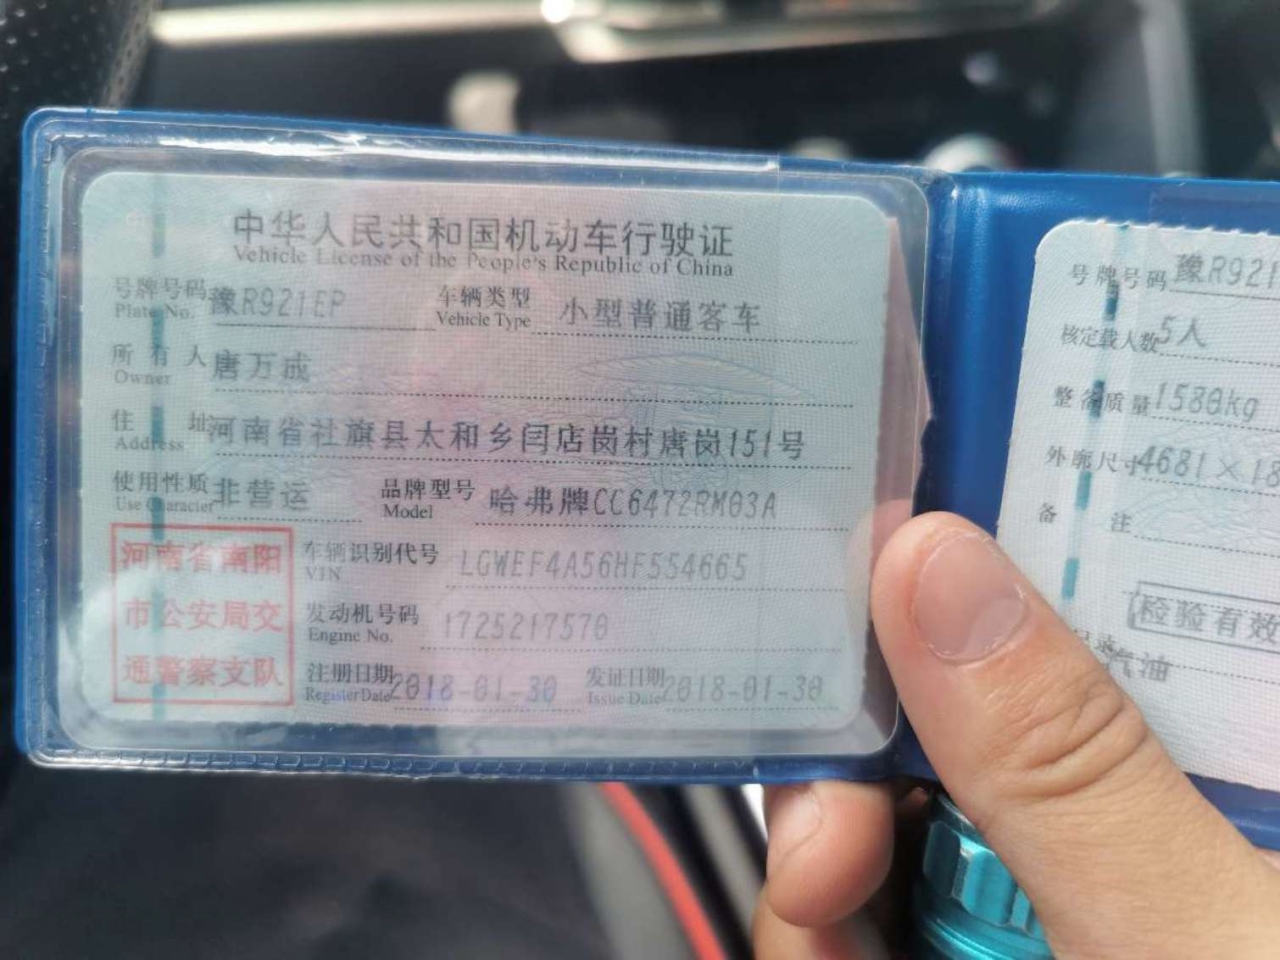 中华人民共和国机动车行驶证
Vehicle License of the People's Republic of China
号牌号码 豫R921EP 车辆类型 小型普通客车
Plate No. Vehicle Type
所有人 唐万成
Owner
住址 河南省社旗县太和乡闫店岗村唐岗151号
Address
使用性质 非营运 品牌型号 哈弗牌CC6472RM03A
Use Character Model
河南省南阳
市公安局交
通警察支队
车辆识别代号 LGWEF4A56HF554665
VIN
发动机号码 1725217570
Engine No.
注册日期 2018-01-30 发证日期 2018-01-30
Register Date Issue Date
号牌号码 豫R921
核定载人数 5人
整备质量 1580kg
外廓尺寸 4681×18
备注
检验有效
汽油